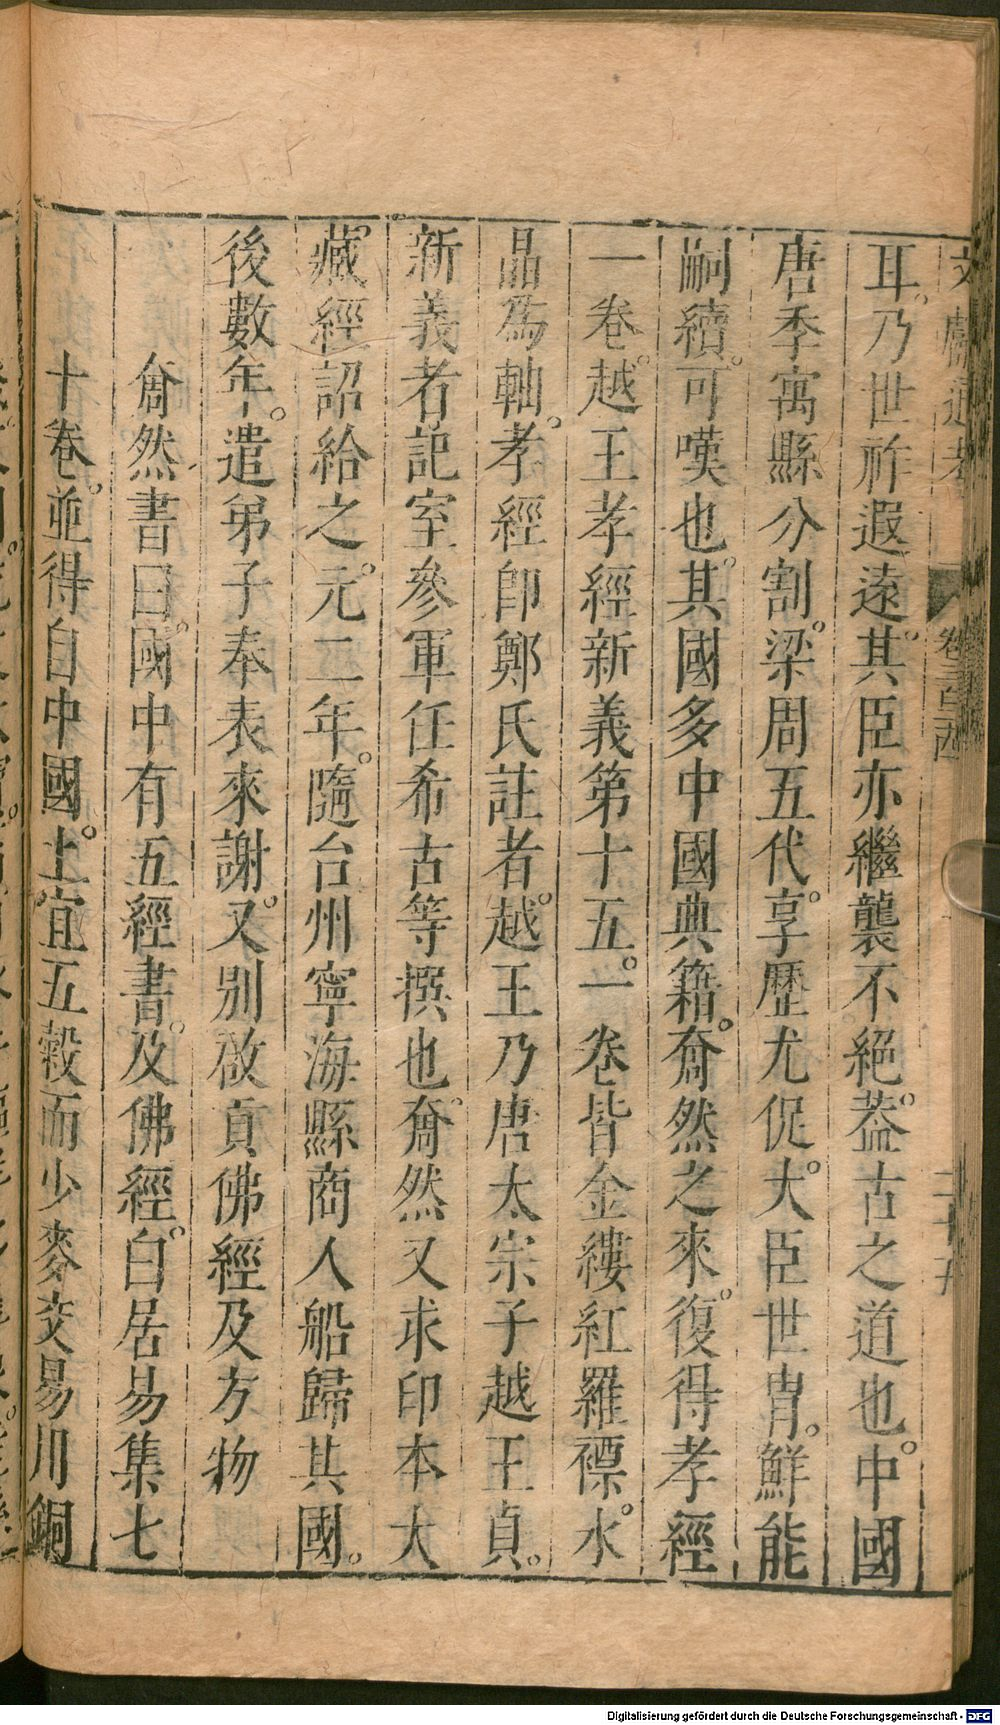 文獻通考 卷三百廿四
耳乃世祚遐遠其臣亦繼襲不絕蓋古之道也中國
唐季寓縣分割梁周五代享歷尤促大臣世胄鮮能
嗣續可嘆也其國多中國典籍奝然之來復得孝經
一卷越王孝經新義第十五一卷皆金縷紅羅褾水
晶為軸孝經卽鄭氏註者越王乃唐太宗子越王貞
新義者記室參軍任希古等撰也奝然又求印本大
藏經詔給之元二年隨台州寧海縣商人船歸其國
後數年遣弟子奉表來謝又別啟貢佛經及方物
奝然書曰國中有五經書及佛經白居易集七
十卷並得自中國土宜五穀而少麥交易用銅
Digitalisierung gefördert durch die Deutsche Forschungsgemeinschaft - DFG